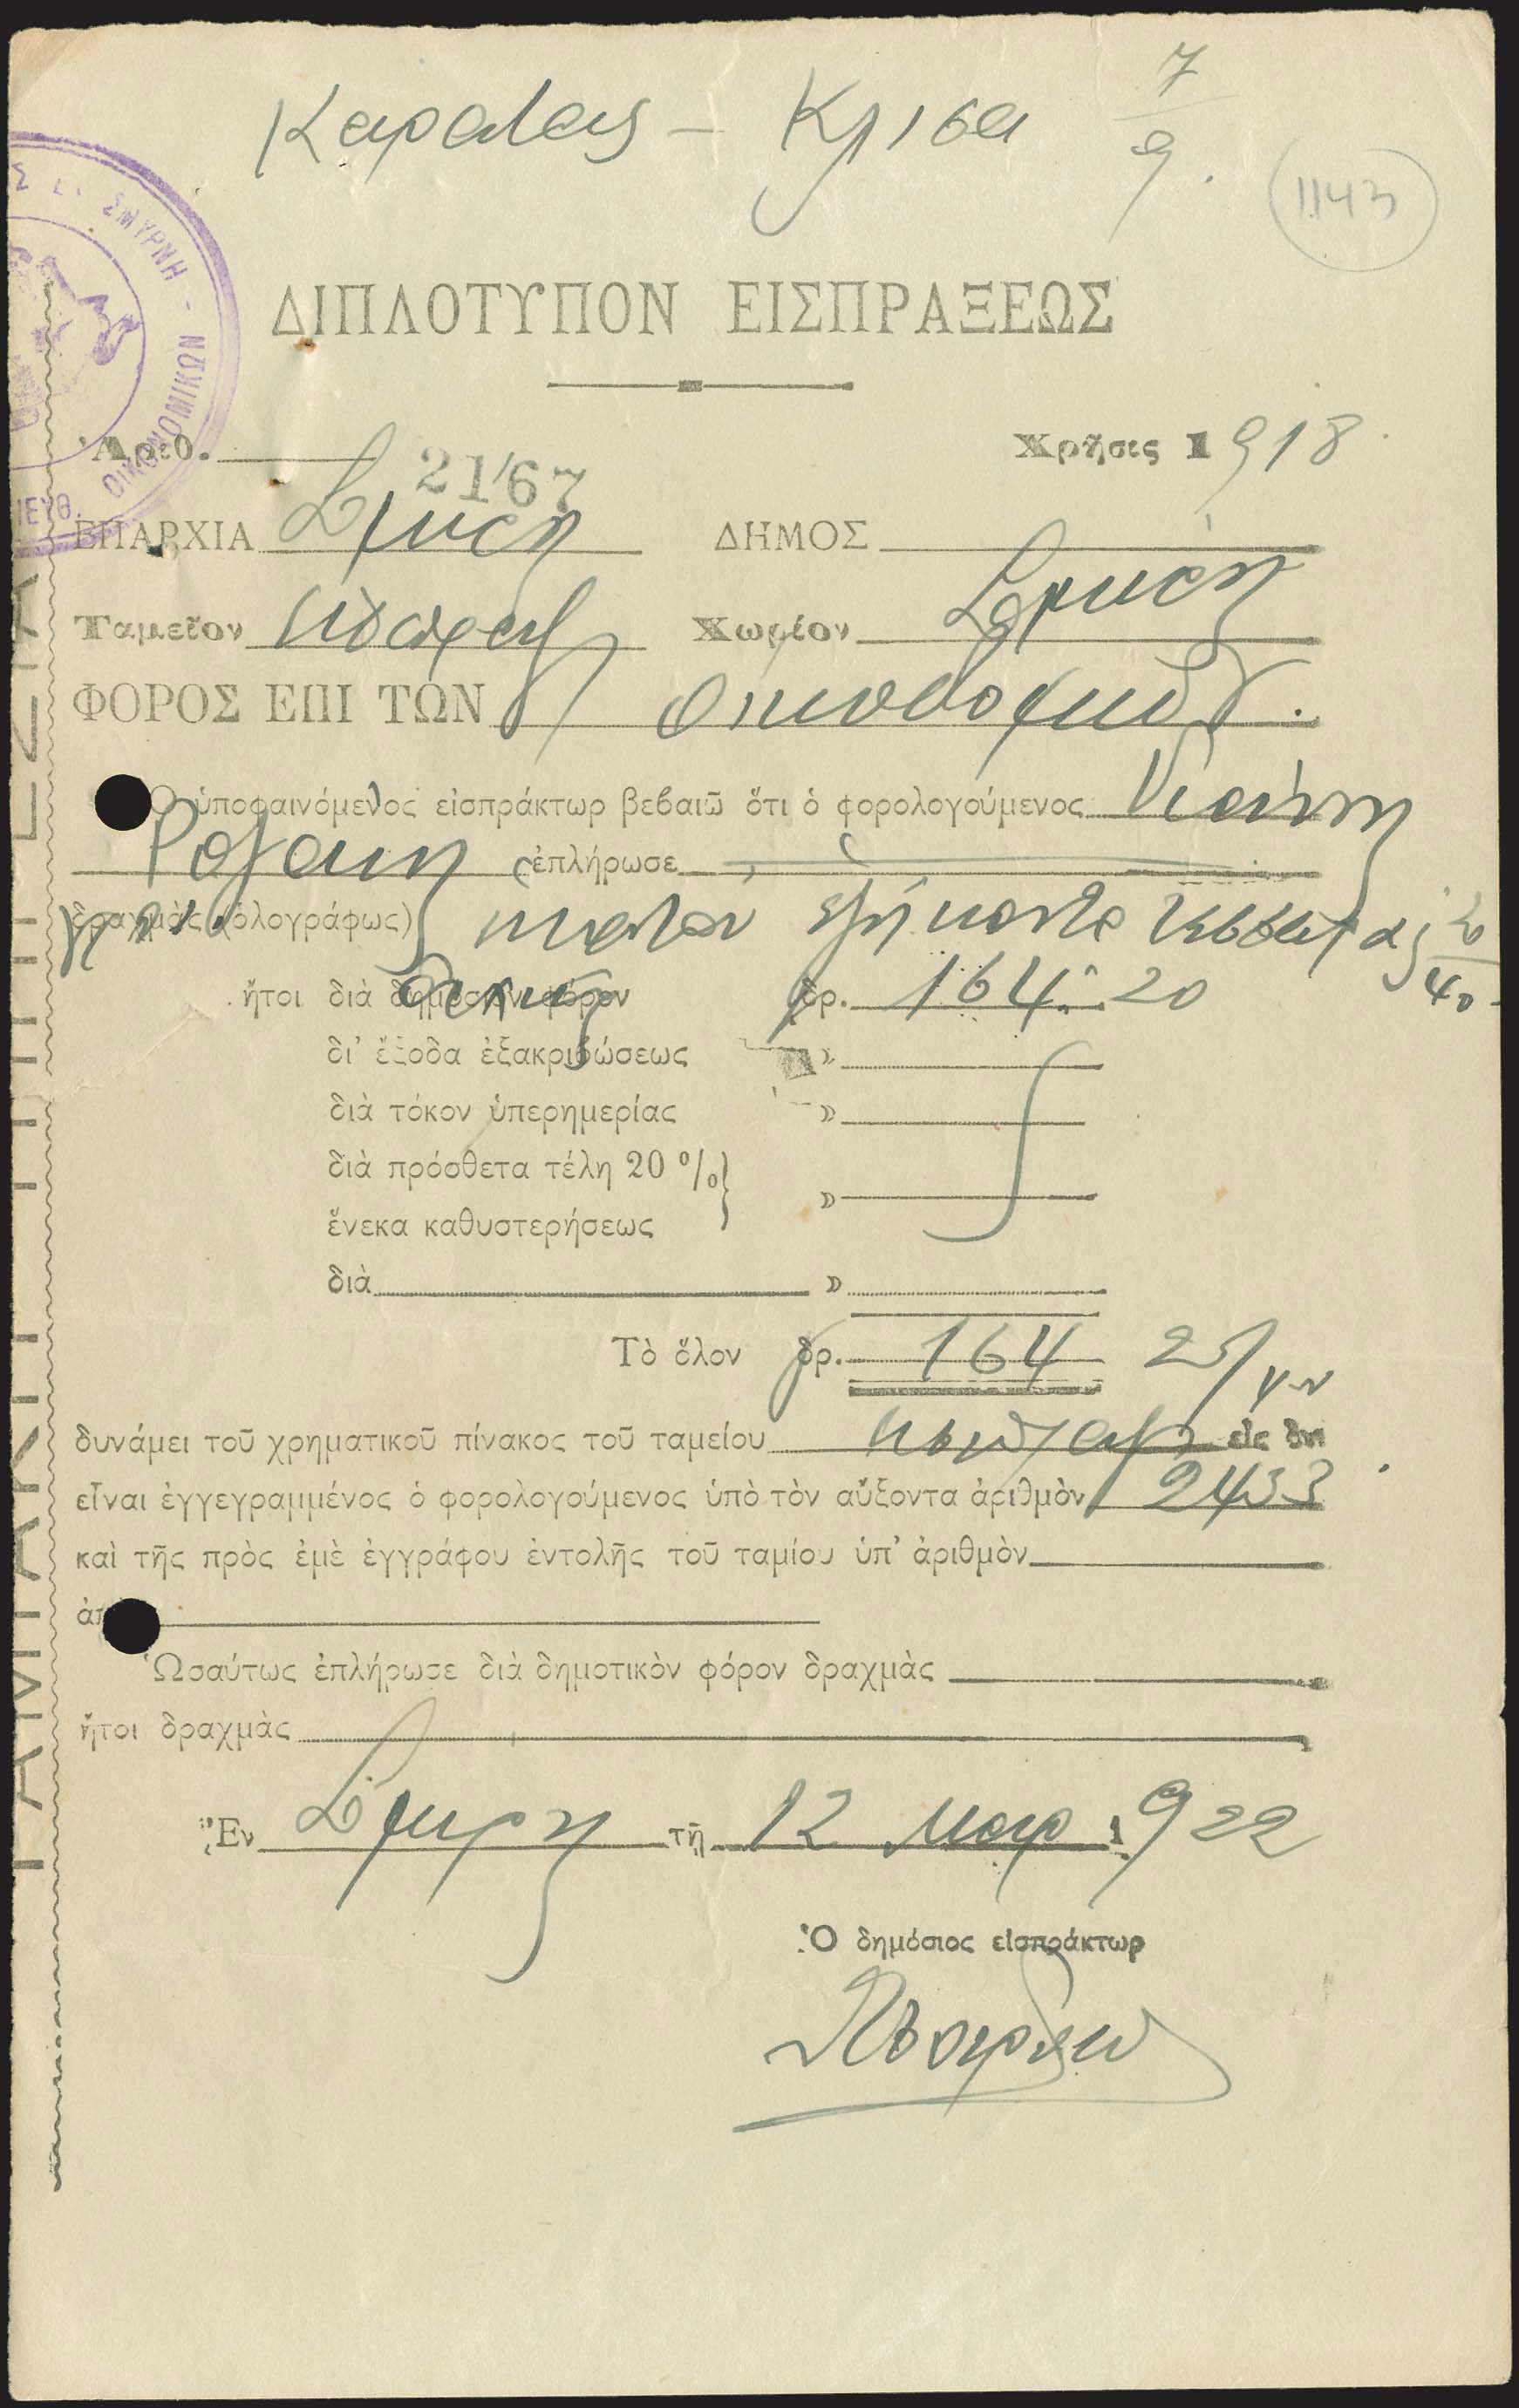 7
9.
1143
Σ Σ. ΣΜΥΡΝΗ - ΟΙΚΟΝΟΜΙΚΩΝ ΙΕΥΘ.
ΔΙΠΛΟΤΥΠΟΝ ΕΙΣΠΡΑΞΕΩΣ
Ἀριθ.
2167
Χρῆσις 1918
ΕΠΑΡΧΙΑ Σμύρνη
ΔΗΜΟΣ
Ταμεῖον
Χωρίον Σμύρνη
ΦΟΡΟΣ ΕΠΙ ΤΩΝ οικοδομών.
Ὁ ὑποφαινόμενος εἰσπράκτωρ βεβαιῶ ὅτι ὁ φορολογούμενος
ἐπλήρωσε
δραχμὰς (ὁλογράφως) εκατόν εξήκοντα τέσσαρας 20
40
ἤτοι διὰ δημόσιον φόρον δρ. 164. 20
δι' ἔξοδα ἐξακριβώσεως »
διὰ τόκον ὑπερημερίας »
διὰ πρόσθετα τέλη 20 % »
ἕνεκα καθυστερήσεως
διὰ »
Τὸ ὅλον δρ. 164
δυνάμει τοῦ χρηματικοῦ πίνακος τοῦ ταμείου εἰς ὃν
εἶναι ἐγγεγραμμένος ὁ φορολογούμενος ὑπὸ τὸν αὔξοντα ἀριθμὸν 2433
καὶ τῆς πρὸς ἐμὲ ἐγγράφου ἐντολῆς τοῦ ταμίου ὑπ' ἀριθμὸν
Ὡσαύτως ἐπλήρωσε διὰ δημοτικὸν φόρον δραχμὰς
ἤτοι δραχμὰς
Ἐν Σμύρνη τῇ 12 Μαρ 1922
Ὁ δημόσιος εἰσπράκτωρ